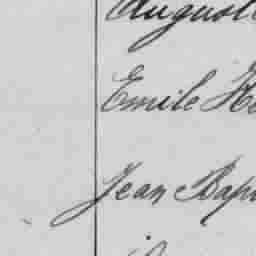 August
Emile He
Jean Bap